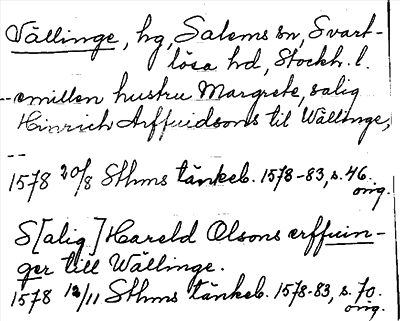 Vällinge, hg, Salems sn, Svart-
lösa hd, Stockh. l.
--emillen hustru Margrete, salig
Hinrich Arffuidsons til Wällinge,
--
1578 20/8 Sthms tänkeb. 1578-83, s. 46.
orig.
S[alig] Hareld Olsons erffuin-
ger till Wällinge.
1578 12/11 Sthms tänkeb. 1578-83, s. 70.
orig.